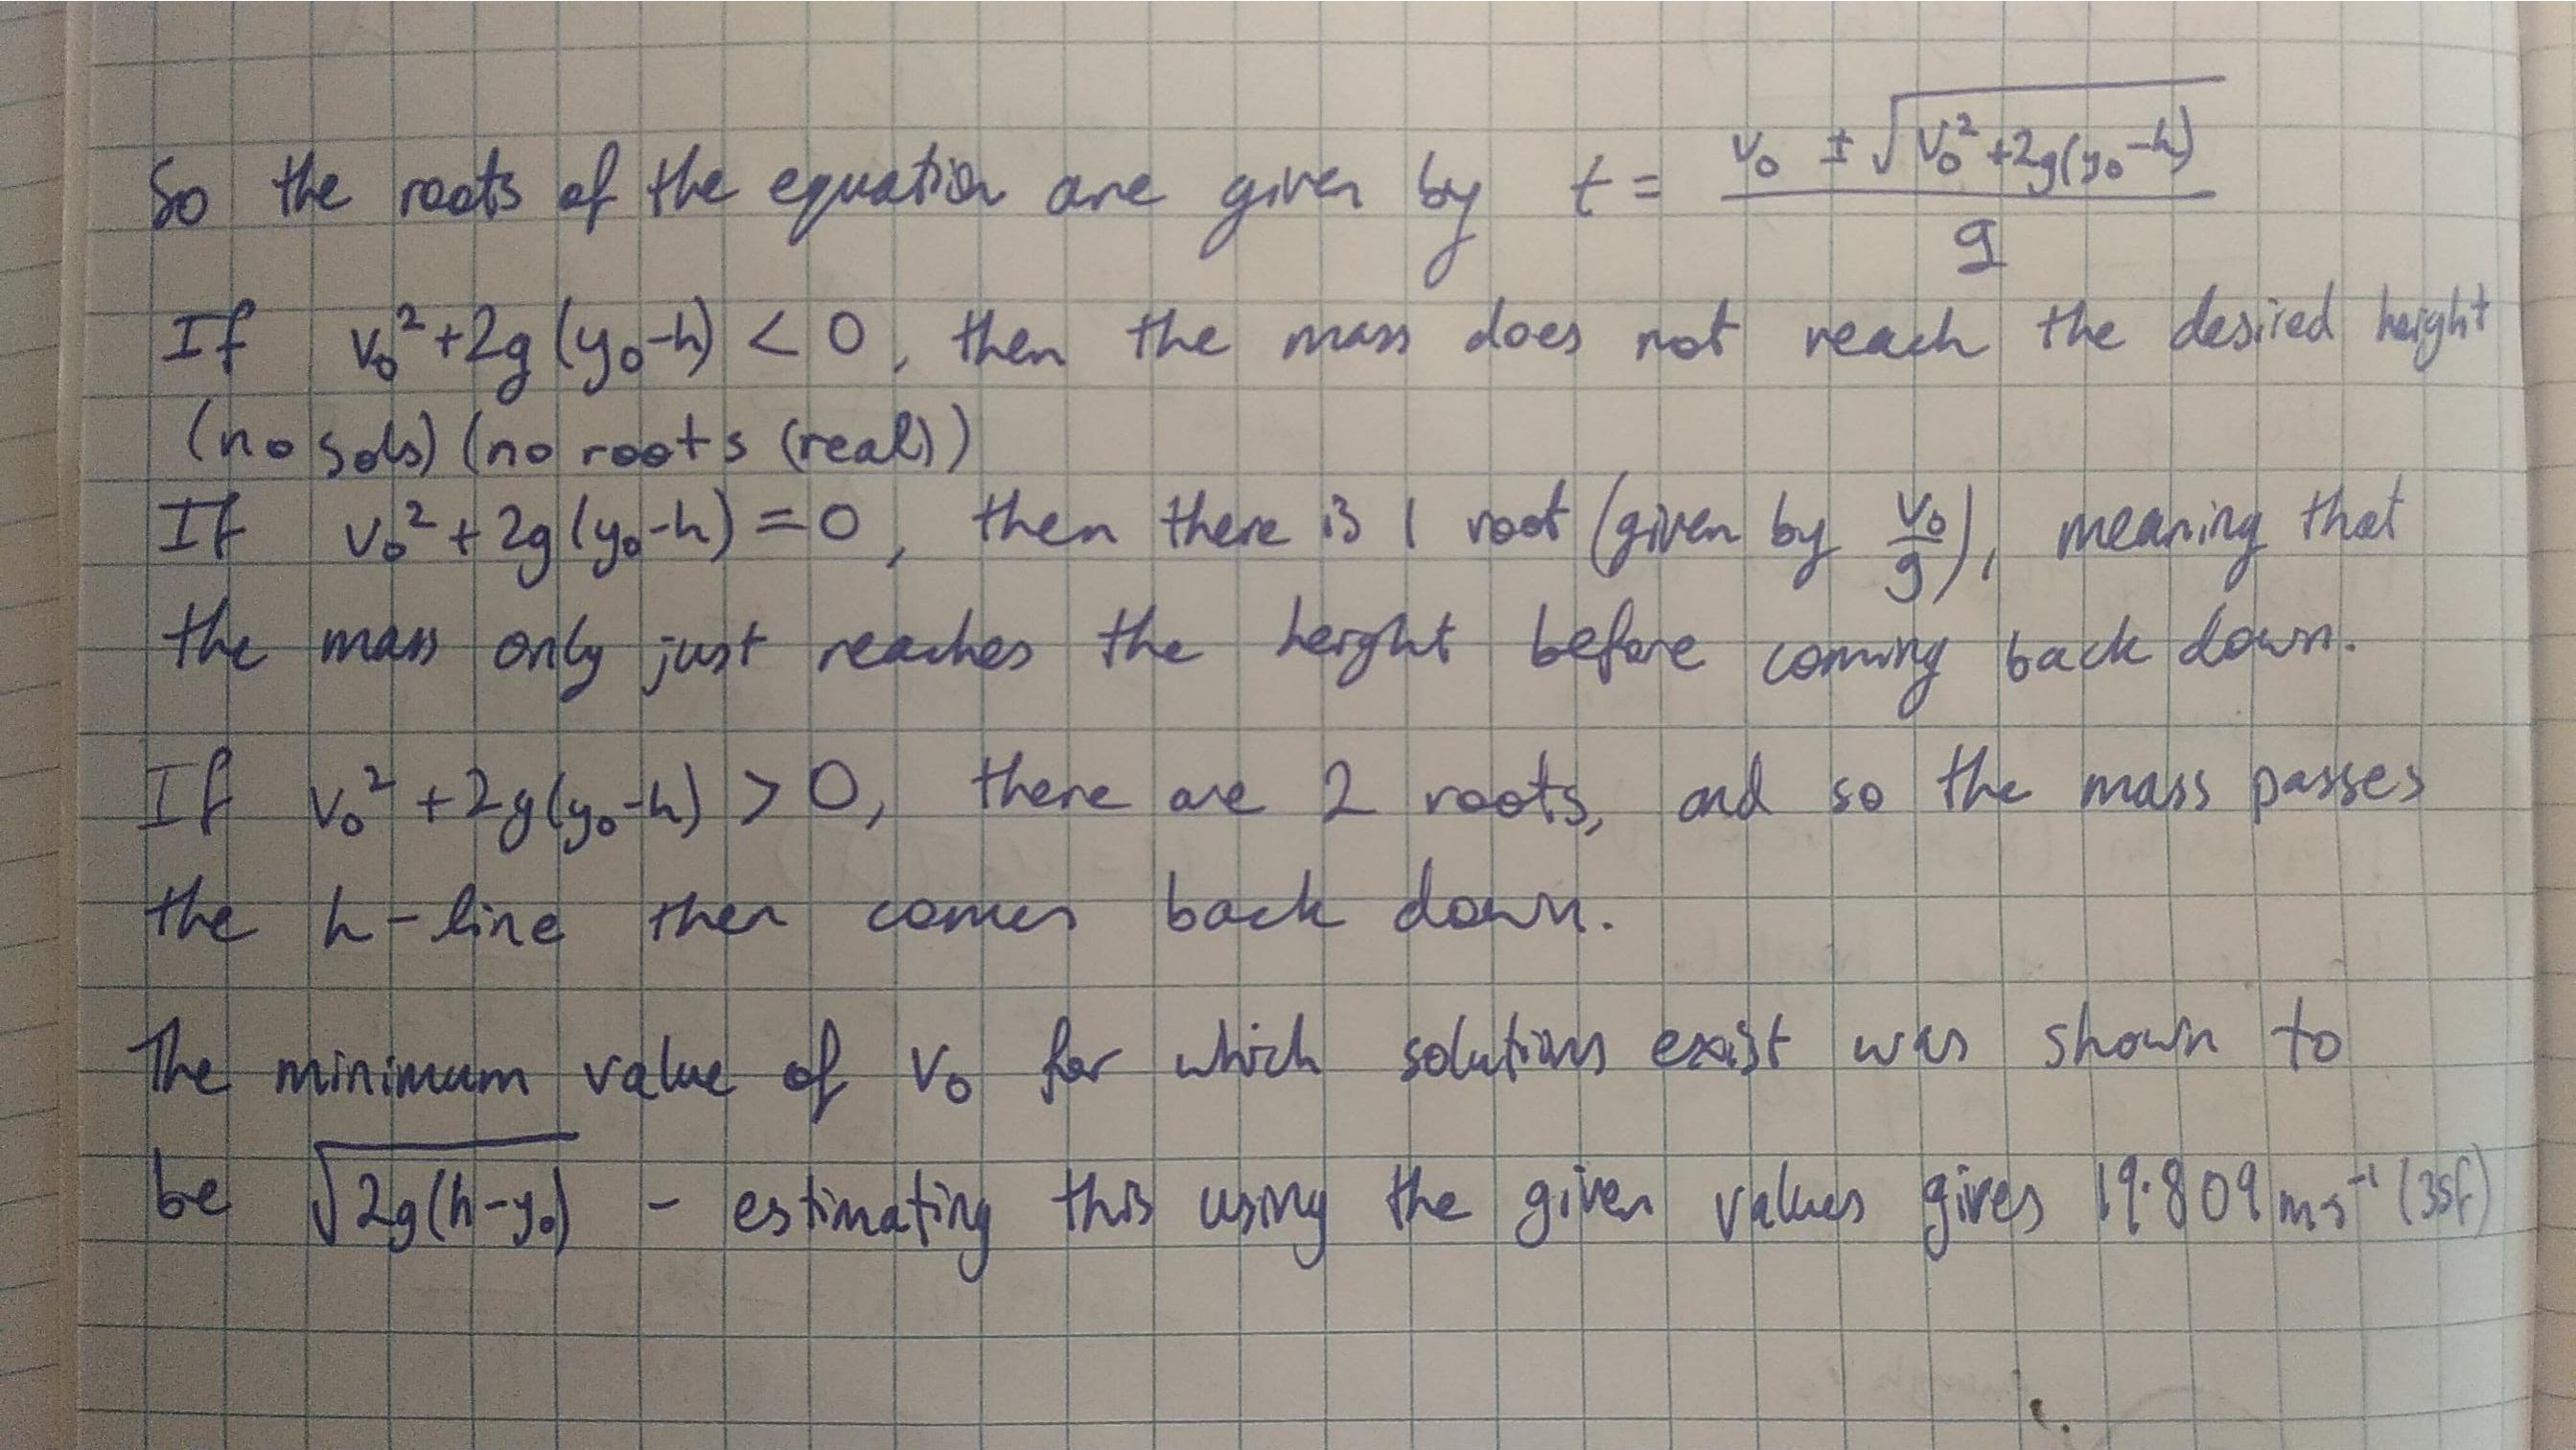 So the roots of the equation are given by t = (v₀ ± √(v₀² + 2g(y₀-h))) / g
If v₀² + 2g(y₀-h) < 0, then the mass does not reach the desired height
(no sols) (no roots (real))
If v₀² + 2g(y₀-h) = 0, then there is 1 root (given by v₀/g), meaning that
the mass only just reaches the height before coming back down.
If v₀² + 2g(y₀-h) > 0, there are 2 roots, and so the mass passes
the h-line then comes back down.
The minimum value of v₀ for which solutions exist was shown to
be √(2g(h-y₀)) - estimating this using the given values gives 19.809 ms⁻¹ (3sf)